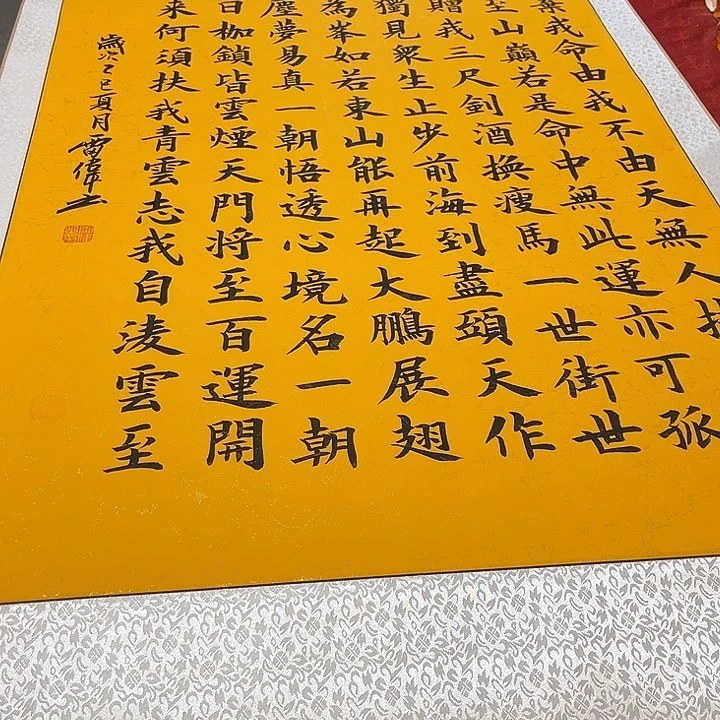 棄我命由我不由天無人扶
至山巔若是命中無此運亦可孤
贈我三尺劍酒換瘦馬一世街世
獨見衆生止步前海到盡頭天作
為峯如若東山能再起大鵬展翅
塵夢易真一朝悟透心境名一朝
日枷鎖皆雲煙天門将至百運開
来何須扶我青雲志我自淩雲至
歲次乙巳夏月